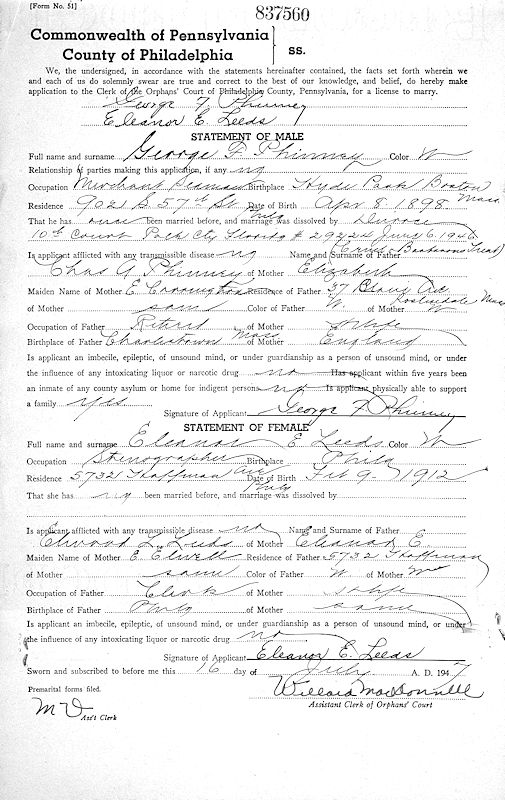 [Form No. 51]
837560
Commonwealth of Pennsylvania
County of Philadelphia
SS.
We, the undersigned, in accordance with the statements hereinafter contained, the facts set forth wherein we
and each of us do solemnly swear are true and correct to the best of our knowledge, and belief, do hereby make
application to the Clerk of the Orphans' Court of Philadelphia County, Pennsylvania, for a license to marry.
George F. Phinney
Eleanor E. Leeds
STATEMENT OF MALE
Full name and surname George F. Phinney Color W
Relationship of parties making this application, if any no
Occupation Merchant Seaman Birthplace Hyde Park Boston Mass
Residence 902 S 57th St Phila Date of Birth Apr 8 1898
That he has once been married before, and marriage was dissolved by Divorce
10th Court Polk Cty Florida # 29224 June 6 1946
Is applicant afflicted with any transmissible disease no Name and Surname of Father (Cruel & Treat)
Chas A Phinney of Mother Elizabeth
Maiden Name of Mother E Residence of Father 37 Ave Roslindale Mass
of Mother same Color of Father W. of Mother W
Occupation of Father Retired of Mother H Wife
Birthplace of Father Charlestown Mass of Mother England
Is applicant an imbecile, epileptic, of unsound mind, or under guardianship as a person of unsound mind, or under
the influence of any intoxicating liquor or narcotic drug no Has applicant within five years been
an inmate of any county asylum or home for indigent persons no Is applicant physically able to support
a family yes
Signature of Applicant George F. Phinney
STATEMENT OF FEMALE
Full name and surname Eleanor E Leeds Color W
Occupation Stenographer Birthplace Phila
Residence 5732 Hoffman Ave Phila Date of Birth Feb 9 1912
That she has no been married before, and marriage was dissolved by
Is applicant afflicted with any transmissible disease no Name and Surname of Father
Elwood L. Leeds of Mother Eleanor E.
Maiden Name of Mother E. Elwell Residence of Father 5732 Hoffman
of Mother same Color of Father W. of Mother W
Occupation of Father Clerk of Mother H Wife
Birthplace of Father Phila of Mother same
Is applicant an imbecile, epileptic, of unsound mind, or under guardianship as a person of unsound mind, or under
the influence of any intoxicating liquor or narcotic drug no
Signature of Applicant Eleanor E. Leeds
Sworn and subscribed to before me this 16 day of July A. D. 1947
Premarital forms filed.
Willard MacDonald
Assistant Clerk of Orphans' Court
Ass't Clerk